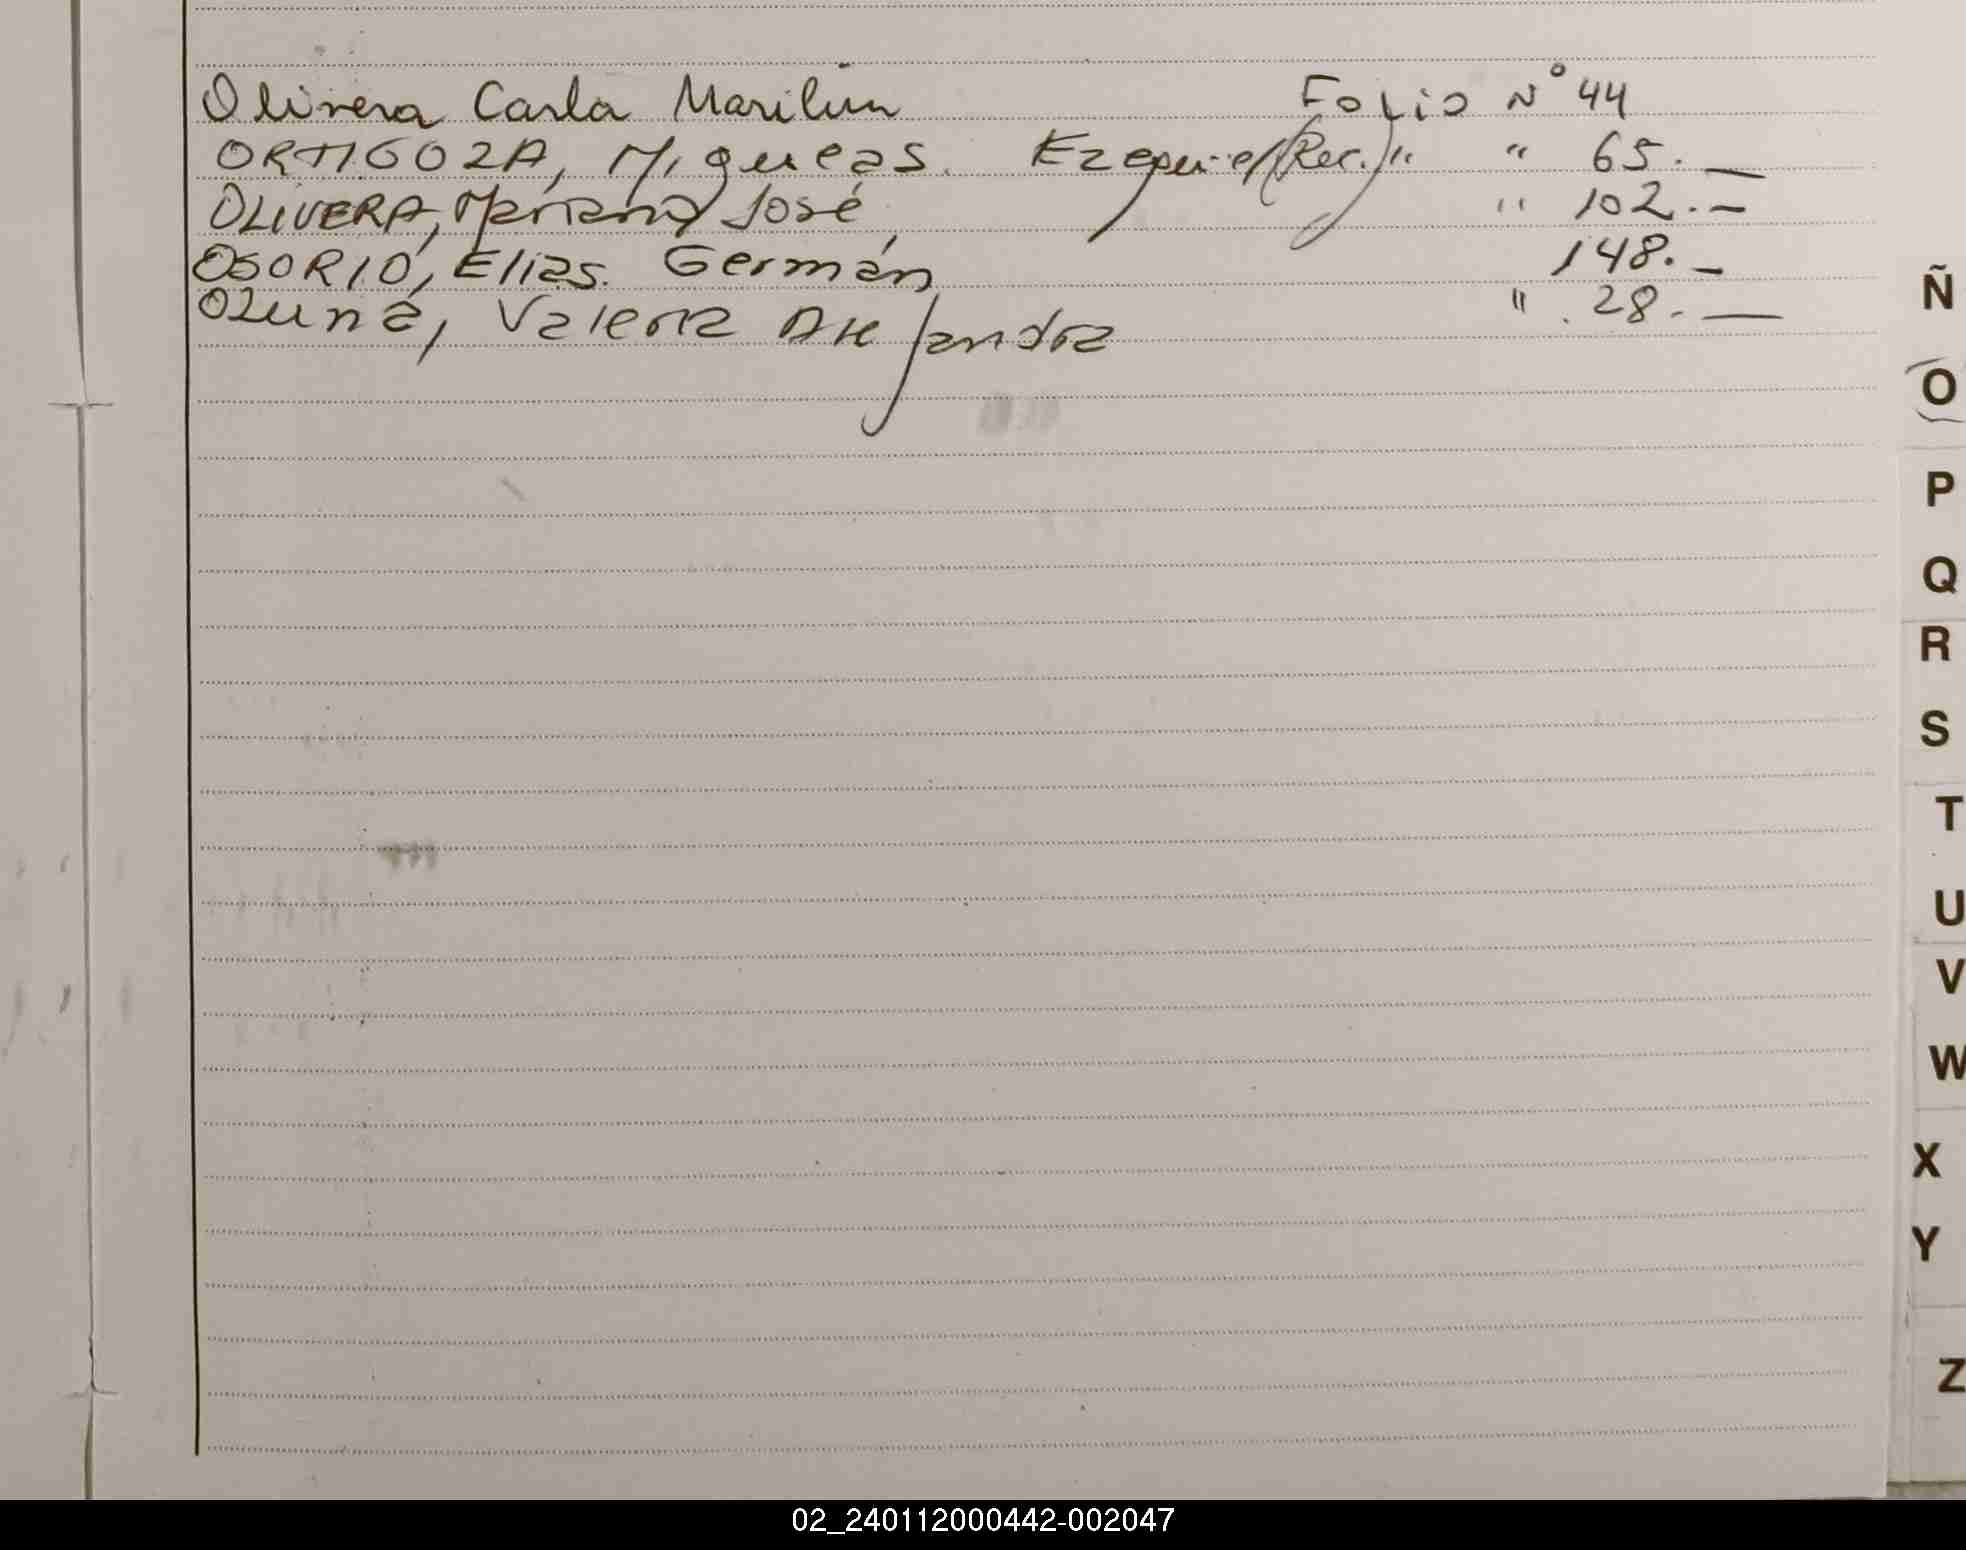 Olivera Carla Marilin Folio N° 44
ORTIGOZA, Miqueas. Ezequiel (Rec.) " " 65. —
OLIVERA, Mariano José, " 102. —
OSORIO, Elias. Germán 148. —
Ozuna, Valeria Alejandra " 28. —
Ñ
O
P
Q
R
S
T
U
V
W
X
Y
Z
02_240112000442-002047